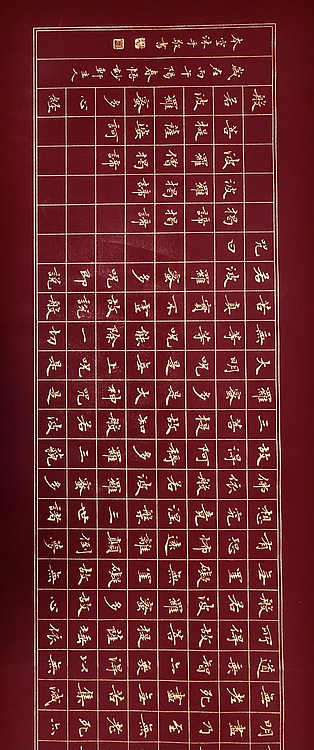 明盡乃至無老死亦
無老死盡無苦集滅
道無智亦無得以無
所得故菩提薩埵依
般若波羅蜜多故心
無罣礙無罣礙故無
有恐怖遠離顛倒夢
想究竟涅槃三世諸
佛依般若波羅蜜多
故得阿耨多羅三藐
三菩提故知般若波
羅蜜多是大神咒是
大明咒是無上咒是
無等等咒能除一切
苦真實不虛故說般
若波羅蜜多咒即說
咒曰
揭諦揭諦
波羅揭諦
波羅僧揭諦
菩提薩婆訶
般若波羅蜜多心經
歲在丙午陽春悟妙軒主人
本空沐手敬書